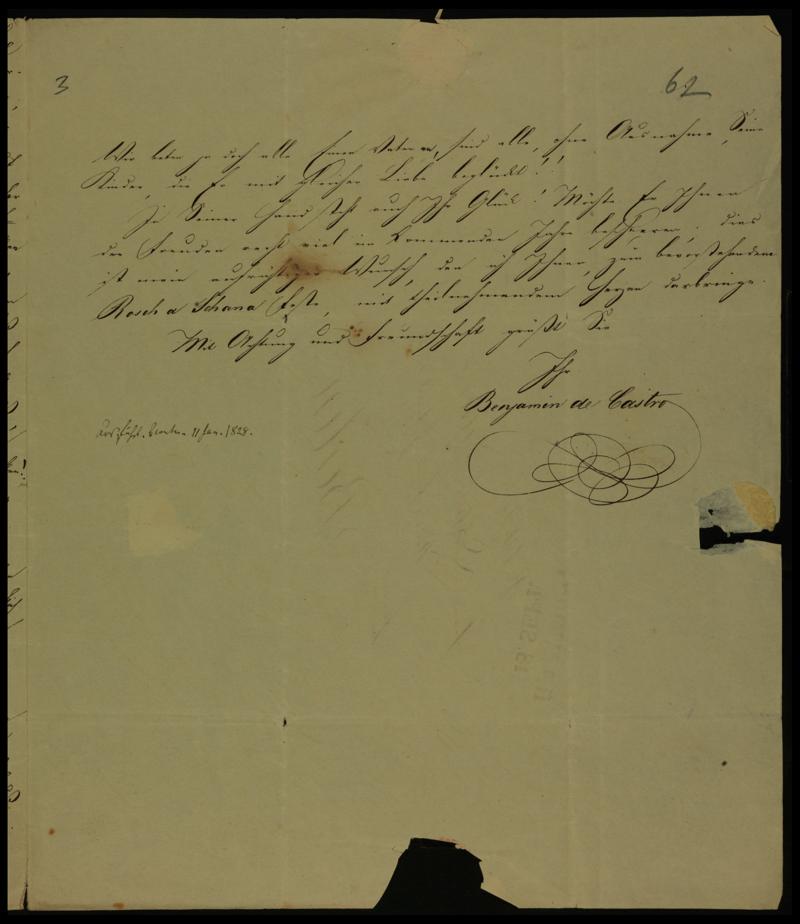 3
62
Wir beten ja doch alle Einen Vater an, sind alle, ohne Ausnahme, Seine
Kinder, die Er mit gleicher Liebe beglückt!!
In Seiner Hand steht auch Ihr Glück! Möchte Er Ihnen
der Freuden recht viel im kommenden Jahre bescheeren; dies
ist mein aufrichtiger Wunsch, den ich Ihnen, zum bevorstehenden
Rosch a Schana Feste, mit theilnehmendem Herzen darbringe.
Mit Achtung und Freundschaft grüßt Sie
Ihr
Benjamin de Castro
11 Jan. 1828.